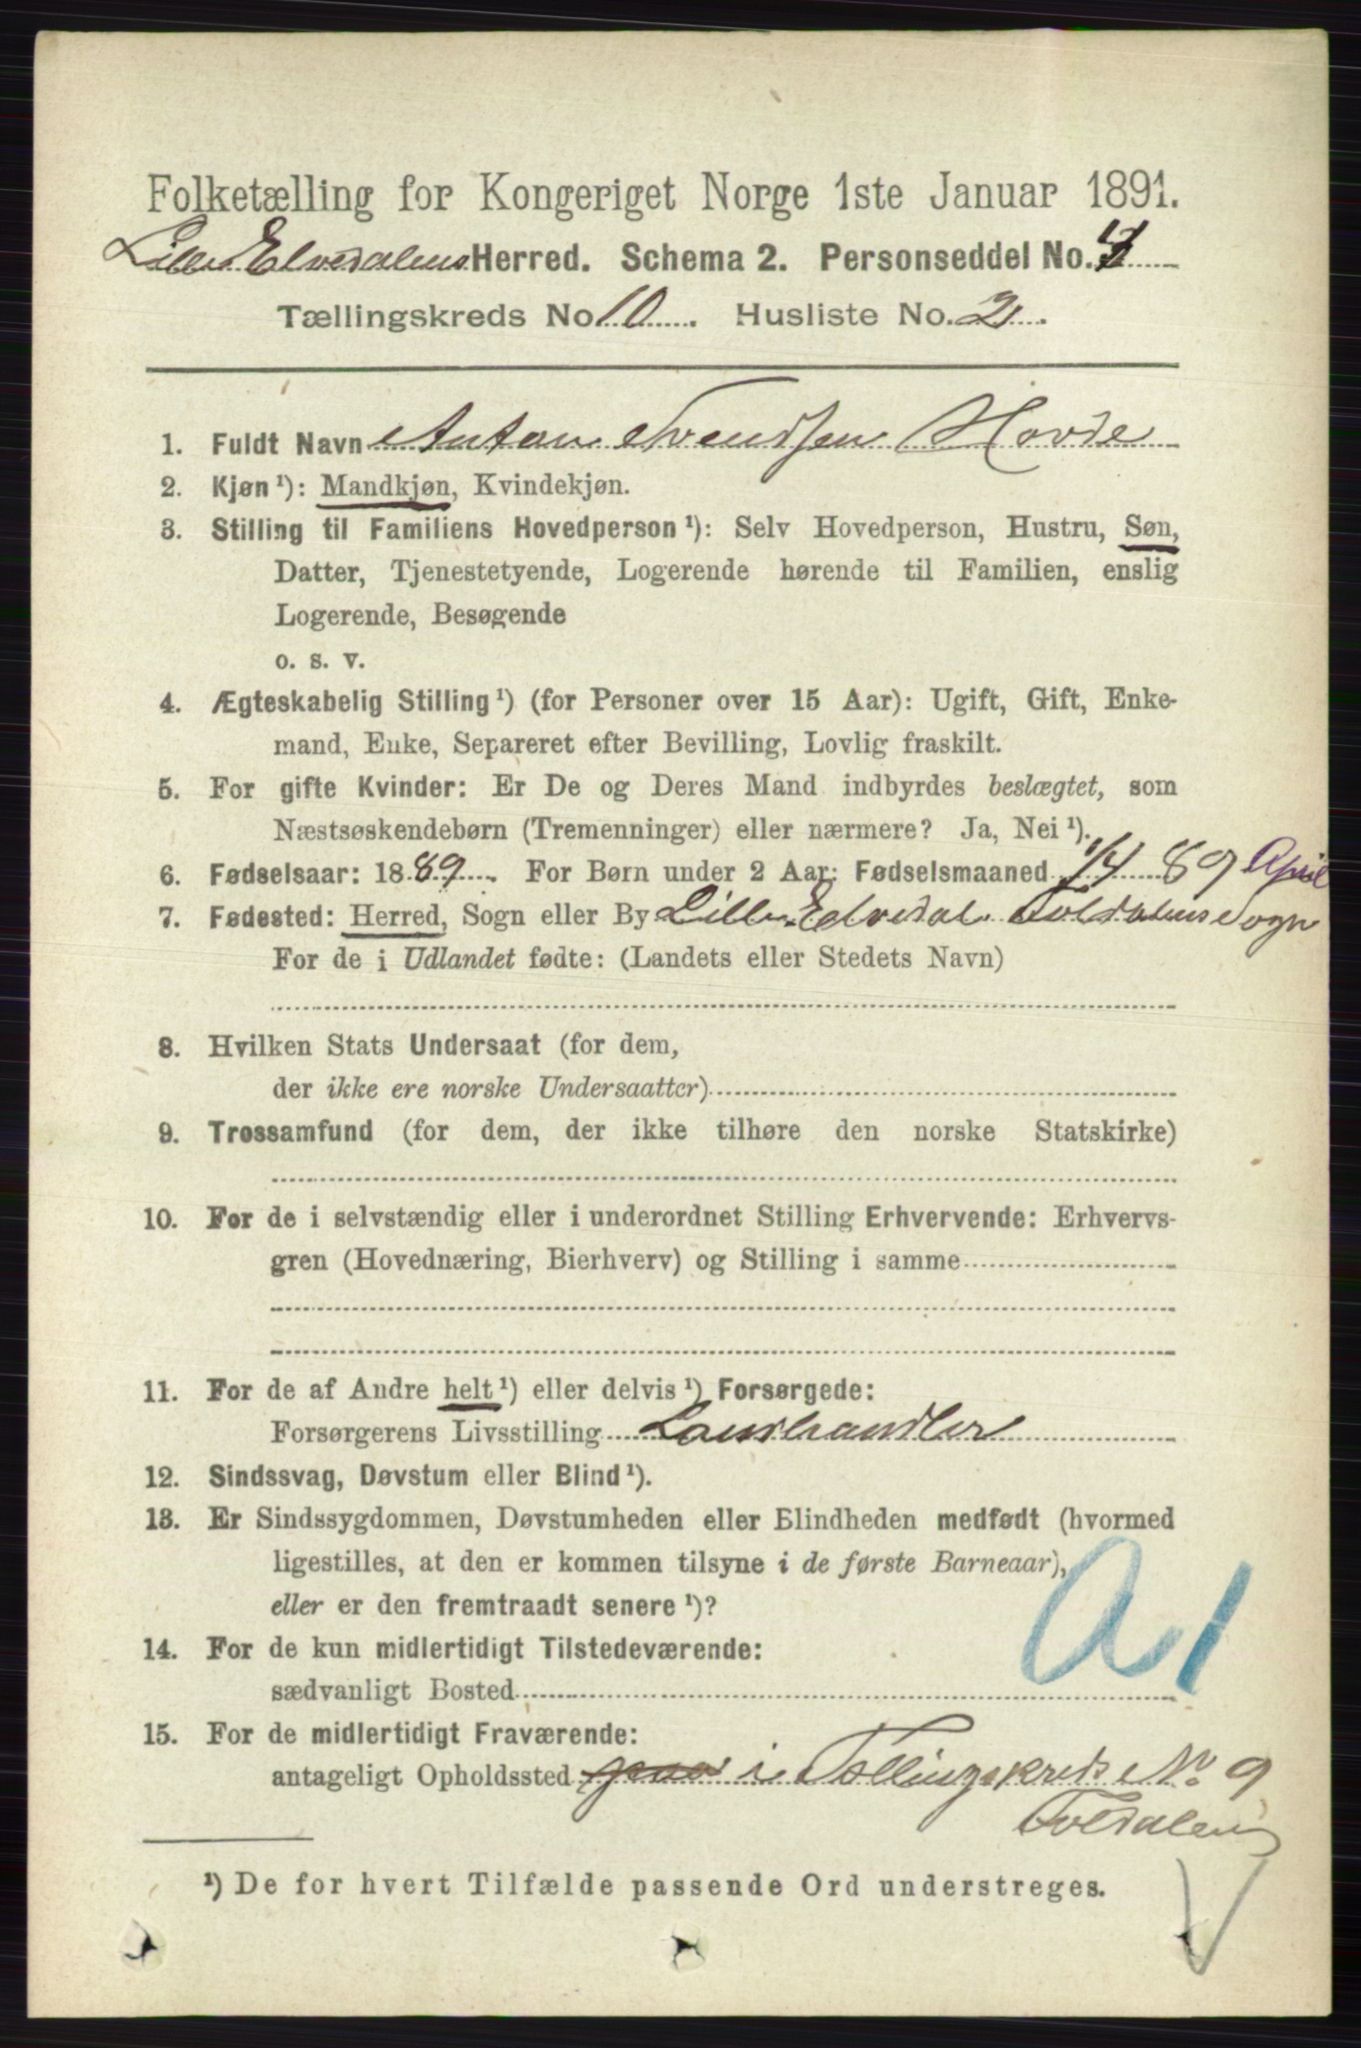 Folketælling for Kongeriget Norge 1ste Januar 1891.
Lille Elvedalens Herred. Schema 2. Personseddel No.
Tællingskreds No 10. Husliste No. 2.
1. Fuldt Navn Anton Svendsen Hovde
2. Kjøn ¹): Mandkjøn, Kvindekjøn.
3. Stilling til Familiens Hovedperson ¹): Selv Hovedperson, Hustru, Søn,
Datter, Tjenestetyende, Logerende hørende til Familien, enslig
Logerende, Besøgende
o. s. v.
4. Ægteskabelig Stilling ¹) (for Personer over 15 Aar): Ugift, Gift, Enke-
mand, Enke, Separeret efter Bevilling, Lovlig fraskilt.
5. For gifte Kvinder: Er De og Deres Mand indbyrdes beslægtet, som
Næstsøskendebørn (Tremenninger) eller nærmere? Ja, Nei ¹).
6. Fødselsaar: 1889. For Børn under 2 Aar: Fødselsmaaned 1/4 89 April
7. Fødested: Herred, Sogn eller By Lille Elvedal Foldalens Sogn
For de i Udlandet fødte: (Landets eller Stedets Navn)
8. Hvilken Stats Undersaat (for dem,
der ikke ere norske Undersaatter)
9. Trossamfund (for dem, der ikke tilhøre den norske Statskirke)
10. For de i selvstændig eller i underordnet Stilling Erhvervende: Erhvervs-
gren (Hovednæring, Bierhverv) og Stilling i samme
11. For de af Andre helt ¹) eller delvis ¹) Forsørgede:
Forsørgerens Livsstilling Landhandler
12. Sindssvag, Døvstum eller Blind ¹).
13. Er Sindssygdommen, Døvstumheden eller Blindheden medfødt (hvormed
ligestilles, at den er kommen tilsyne i de første Barneaar),
eller er den fremtraadt senere ¹)?
A1
14. For de kun midlertidigt Tilstedeværende:
sædvanligt Bosted
15. For de midlertidigt Fraværende:
antageligt Opholdssted i Tællingskreds No 9
Foldalen
¹) De for hvert Tilfælde passende Ord understreges.